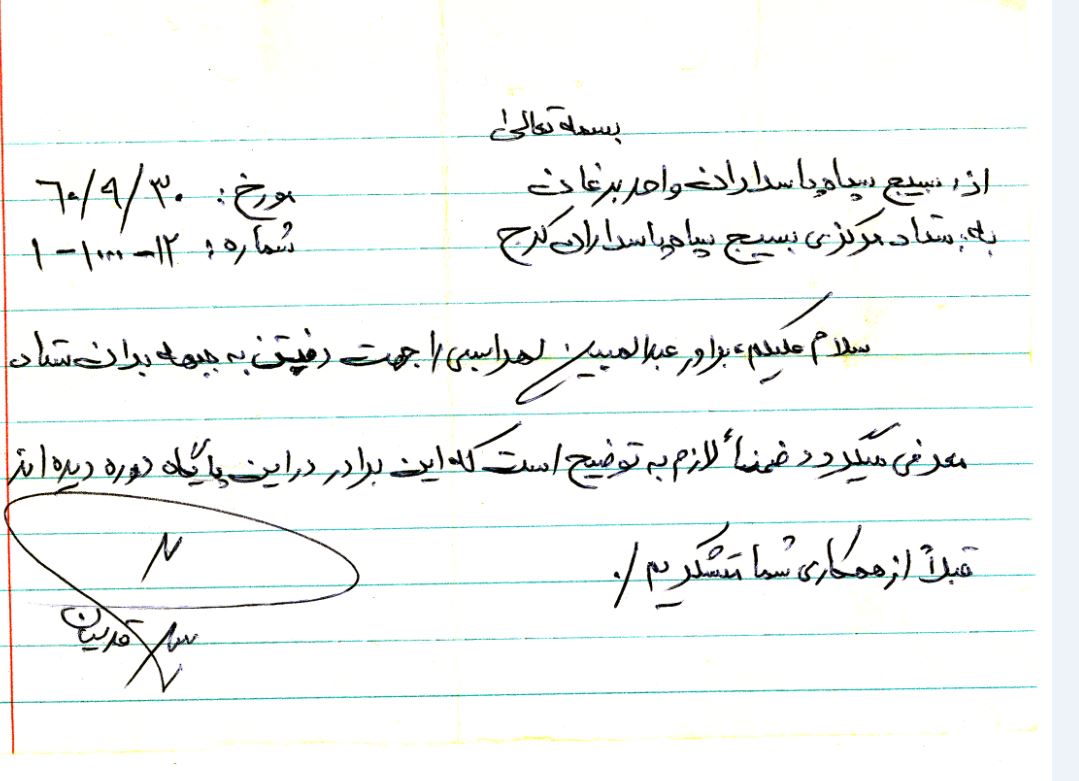 بسمه تعالی
از: بسیج سپاه پاسداران واحد برغان
مورخ: ۶۰/۹/۳۰
به: ستاد مرکزی بسیج سپاه پاسداران کرج
شماره: ۱۲-۱۰۰۰-۱
سلام علیکم، برادر عبدالمبین لهراسبی را جهت رفتن به جبهه بدان ستاد
معرفی میگردد ضمناً لازم به توضیح است که این برادر در این پایگاه دوره دیده اند
قبلاً از همکاری شما متشکریم /.
قدیان